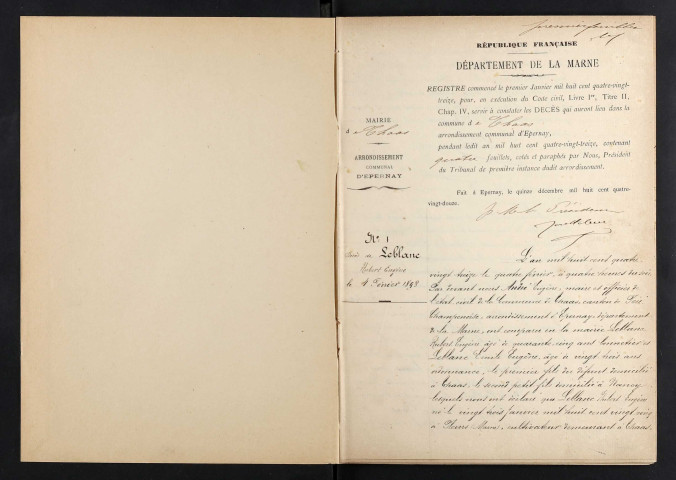 premier feuillet
RÉPUBLIQUE FRANÇAISE
DÉPARTEMENT DE LA MARNE
REGISTRE commencé le premier Janvier mil huit cent quatre-vingt-
treize, pour, en exécution du Code civil, Livre Ier, Titre II,
Chap. IV, servir à constater les DÉCÈS qui auront lieu dans la
commune d e Thaas
arrondissement communal d'Epernay,
pendant ledit an mil huit cent quatre-vingt-treize, contenant
quatre feuillets, cotés et paraphés par Nous, Président
du Tribunal de première instance dudit arrondissement.
Fait à Epernay, le quinze décembre mil huit cent quatre-
vingt-douze.
MAIRIE
d e Thaas
ARRONDISSEMENT
COMMUNAL
D'EPERNAY
No 1
Leblanc
Hubert Eugène
le 4 Février 1893
L'an mil huit cent quatre
vingt treize le quatre février, à quatre heures du soir
Par devant nous André Eugène, maire et officier de
l'état civil de la Commune de Thaas, canton de Fère
Champenoise, arrondissement d'Epernay, département
de la Marne, ont comparu en la mairie Leblanc
Hubert Eugène âgé de quarante cinq ans
Leblanc Emile Eugène, âgé de vingt trois ans
le premier fils du défunt domicilié
à Thaas, le second petit fils domicilié à Nancy
lesquels nous ont déclaré que Leblanc Hubert Eugène
né le vingt trois janvier mil huit cent vingt cinq
à Pleurs (Marne), cultivateur demeurant à Thaas,